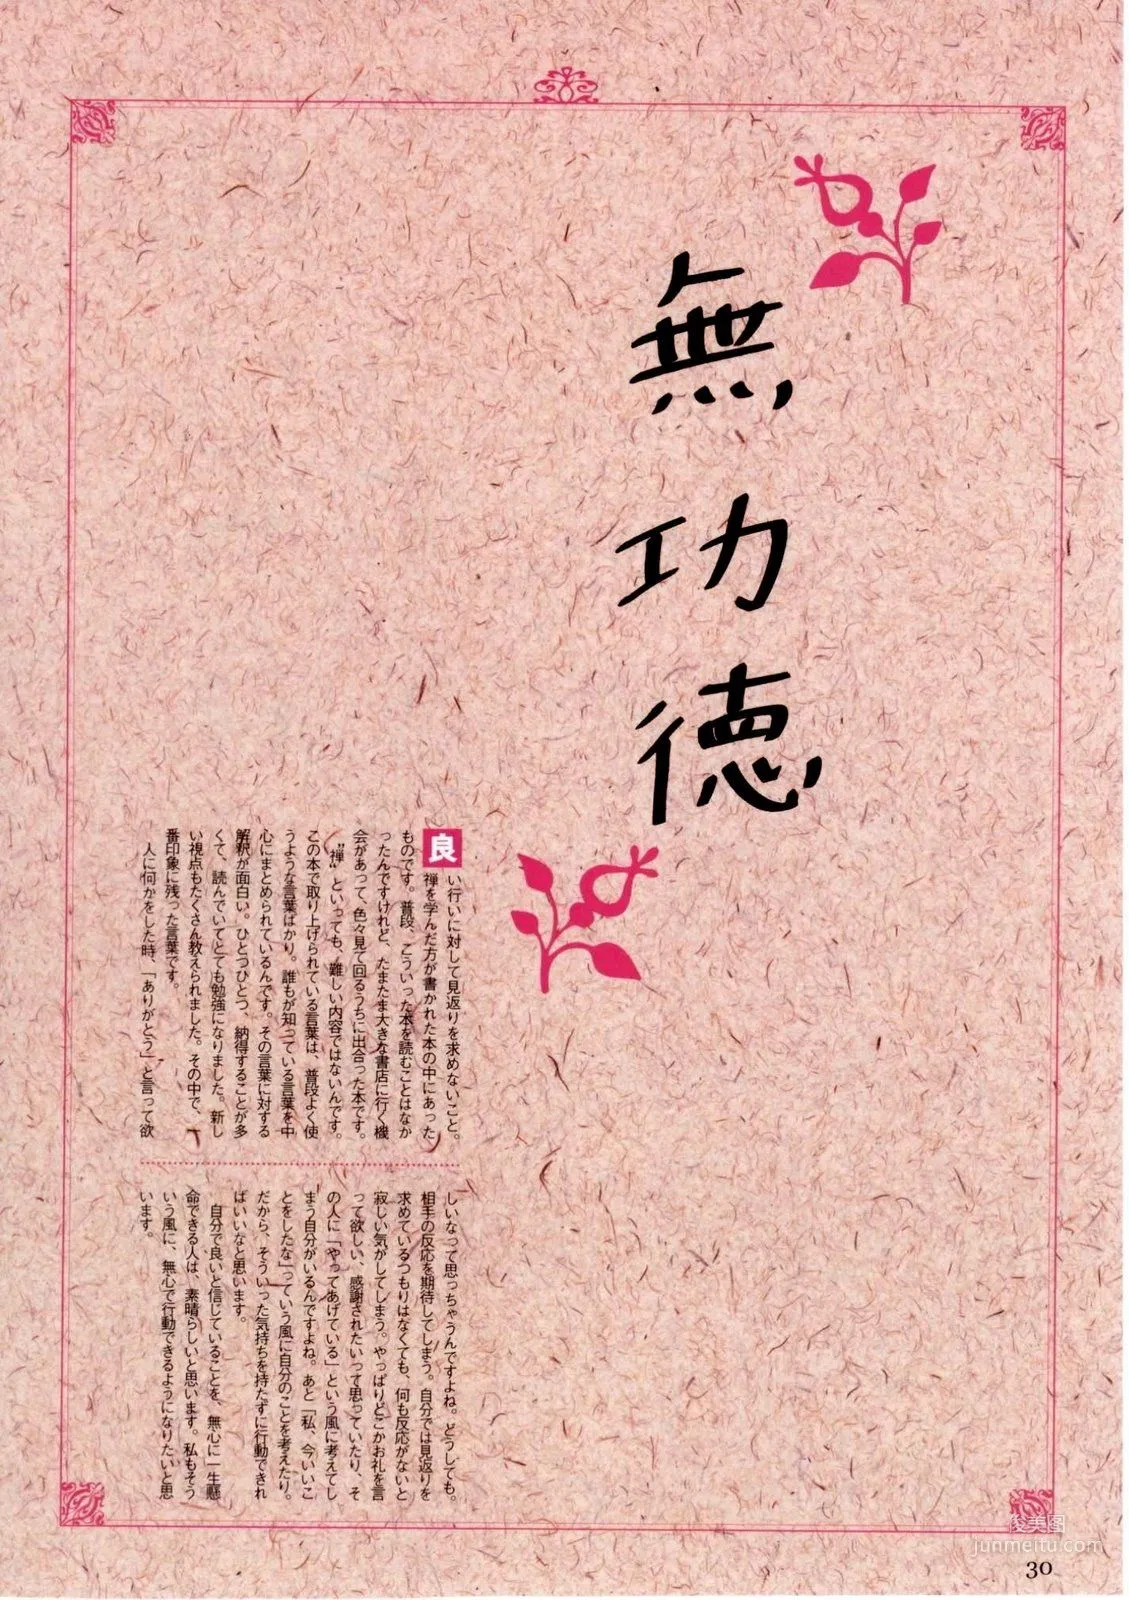 無功徳
良い行いに対して見返りを求めないこと。
禅を学んだ方が書かれた本の中にあった
ものです。普段、こういった本を読むことはなか
ったんですけれど、たまたま大きな書店に行く機
会があって、色々見て回るうちに出合った本です。
“禅”といっても、難しい内容ではないんです。
この本で取り上げられている言葉は、普段よく使
うような言葉ばかり。誰もが知っている言葉を中
心にまとめられているんです。その言葉に対する
解釈が面白い。ひとつひとつ、納得することが多
くて、読んでいてとても勉強になりました。新し
い視点もたくさん教えられました。その中で、一
番印象に残った言葉です。
人に何かをした時、「ありがとう」と言って欲
しいなって思っちゃうんですよね。どうしても。
相手の反応を期待してしまう。自分では見返りを
求めているつもりはなくても、何も反応がないと
寂しい気がしてしまう。やっぱりどこかお礼を言
って欲しい、感謝されたいって思っていたり、そ
の人に「やってあげている」という風に考えてし
まう自分がいるんですよね。あと「私、今いいこ
とをしたな」っていう風に自分のことを考えたり。
だから、そういった気持ちを持たずに行動できれ
ばいいなと思います。
自分で良いと信じていることを、無心に一生懸
命できる人は、素晴らしいと思います。私もそう
いう風に、無心で行動できるようになりたいと思
います。
俊美图
junmeitu.com
30